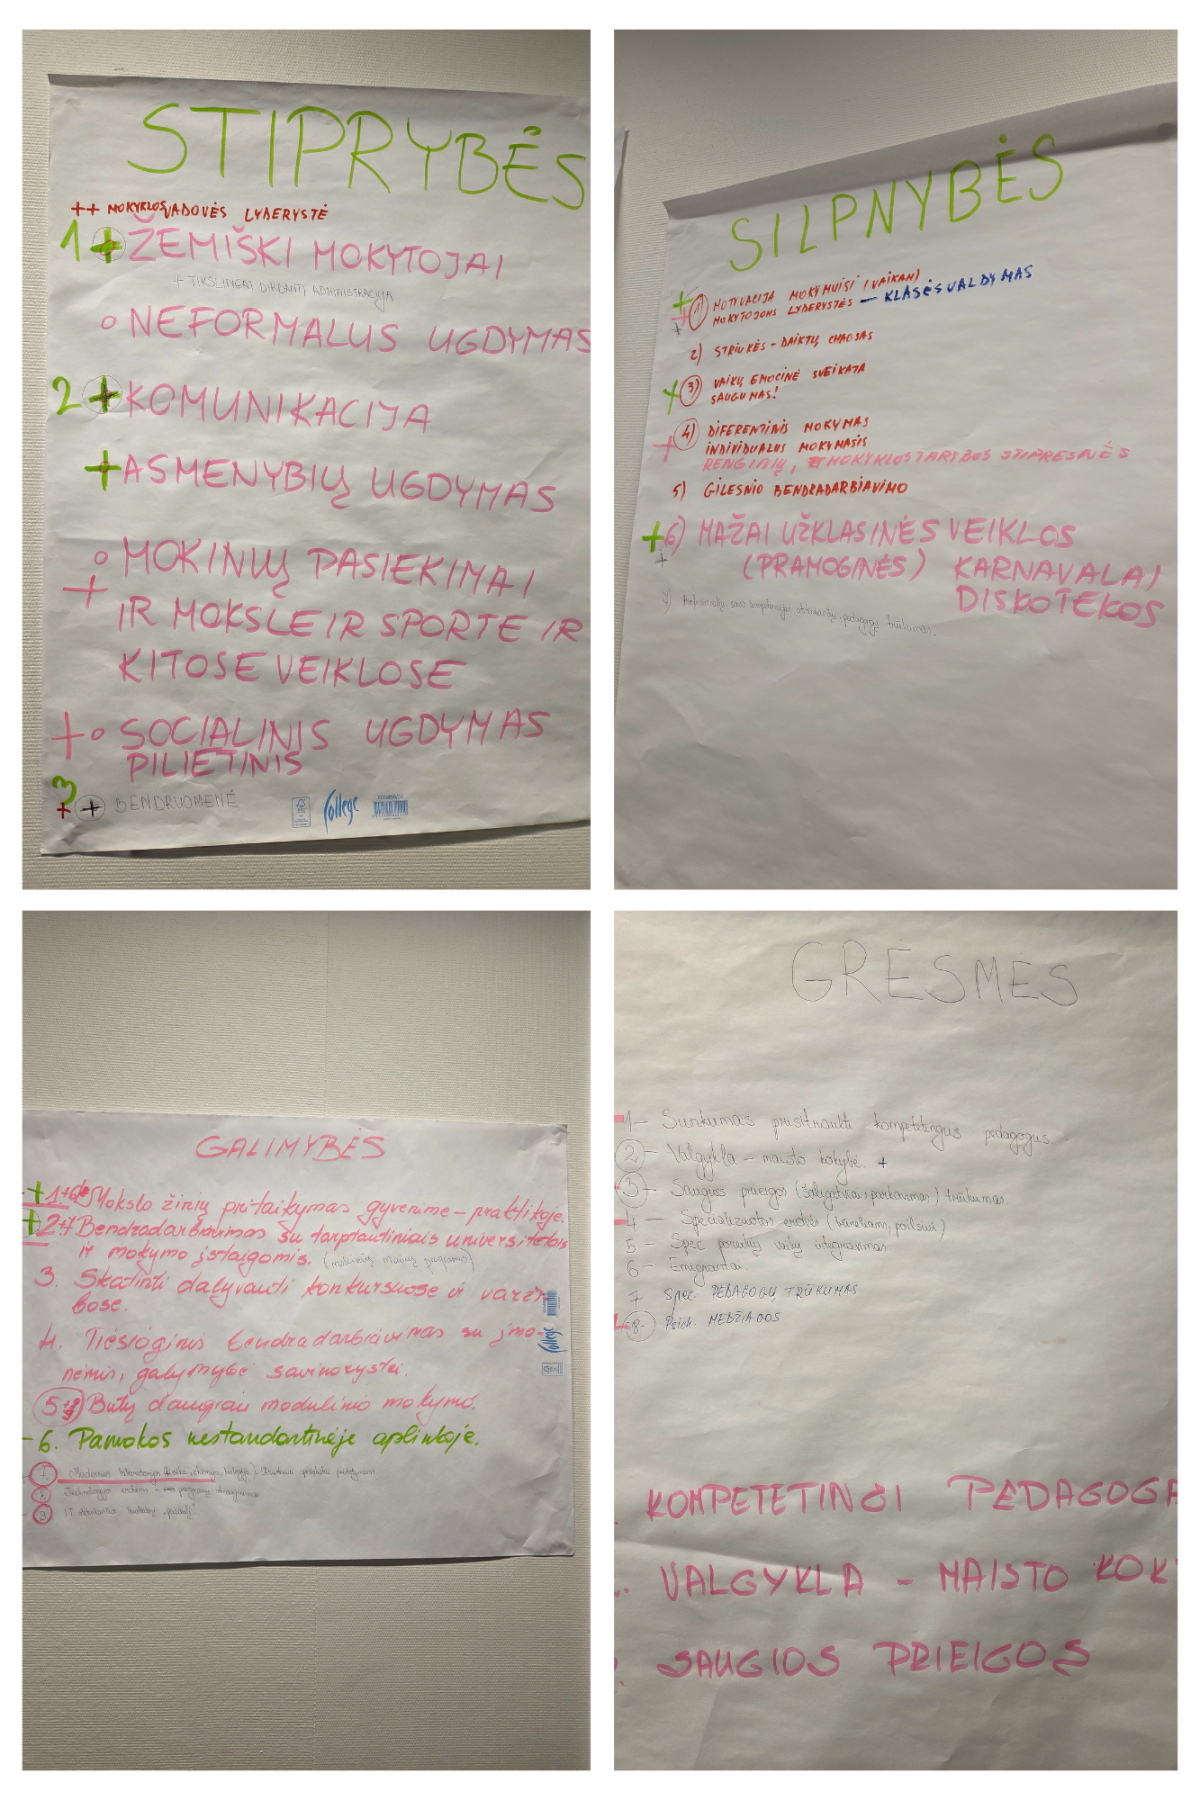 STIPRYBĖS
++ MOKYKLOS VADOVĖS LYDERYSTĖ
1 + ŽEMIŠKI MOKYTOJAI
+ TIKSLINGAI DIRBANTI ADMINISTRACIJA
o NEFORMALUS UGDYMAS
2 + KOMUNIKACIJA
+ ASMENYBIŲ UGDYMAS
o MOKINIŲ PASIEKIMAI
+ IR MOKSLE IR SPORTE IR
KITOSE VEIKLOSE
+ o SOCIALINIS UGDYMAS
PILIETINIS
3
+ + BENDRUOMENĖ
College
SILPNYBĖS
+ 1) MOTYVACIJA MOKYMUISI (VAIKAM)
MOKYTOJOMS LYDERYSTĖS — KLASĖS VALDYMAS
2) STRIUKĖS - DAIKTŲ CHAOSAS
+ 3) VAIKŲ EMOCINĖ SVEIKATA
SAUGUMAS!
+ 4) DIFERENTINIS MOKYMAS
INDIVIDUALUS MOKYMASIS
RENGINIŲ, MOKYKLOS TARYBOS STIPRESNĖS
5) GILESNIO BENDRADARBIAVIMO
+ 6) MAŽAI UŽKLASINĖS VEIKLOS
+ (PRAMOGINĖS) KARNAVALAI
DISKOTEKOS
7) pedagogų trūkumas.
GALIMYBĖS
+ 1. Mokslo žinių pritaikymas gyvenime – praktikoje.
+ 2. Bendradarbiavimas su tarptautiniais universitetais
ir mokymo įstaigomis. (mokinių mainų programos)
3. Skatinti dalyvauti konkursuose ir varžy-
bose.
4. Tiesioginis bendradarbiavimas su įmo-
nėmis, galymybė savanorystei.
5 Butų daugiau modulinio mokymo.
- 6. Pamokos nestandartinėje aplinkoje.
1. Modernios laboratorijos (fizika, chemija, biologija)
2. Technologijų
3 IT
College
GRĖSMĖS
1 – Sunkumas prisitraukti kompetetingus pedagogus.
2 – Valgykla – maisto kokybė. +
3 – Saugios prieigos (šaligatviai, parkavimas) trūkumas
4 – Specializuotos erdvės (bendram, poilsiui)
5 – Spec poreikių vaikų integravimas
6 – Emigrantai
7 Spec. PEDAGOGŲ TRŪKUMAS
8. Psich. MEDŽIAGOS
KOMPETETINGI PEDAGOGA
VALGYKLA – MAISTO KOK
SAUGIOS PRIEIGOS